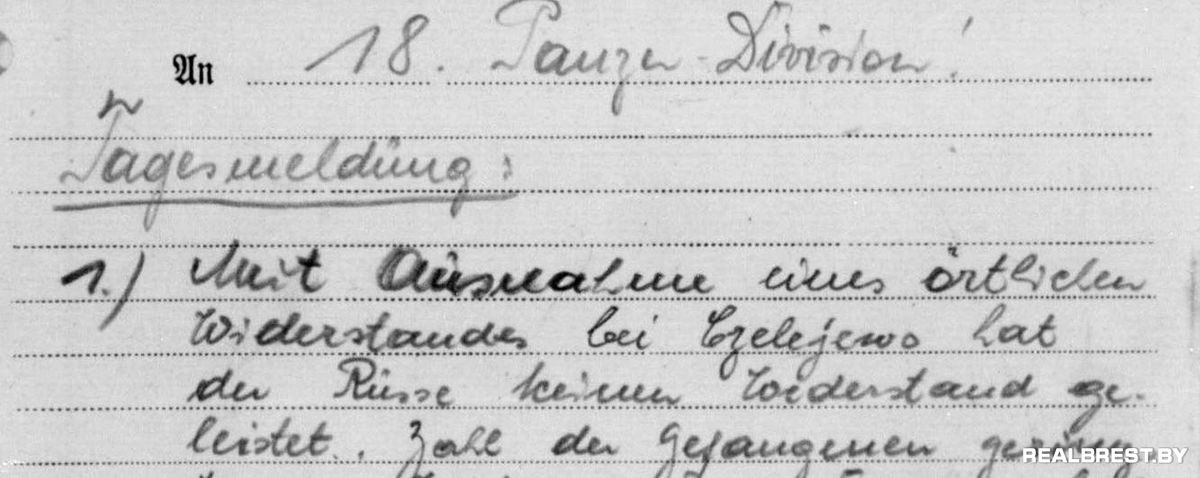 An 18. Panzer-Division!
Tagesmeldung:
1.) Mit Ausnahme eines örtlichen
Widerstandes bei Czelejewo hat
der Russe keinen Widerstand ge-
leistet. Zahl der Gefangenen gering
REALBREST.BY